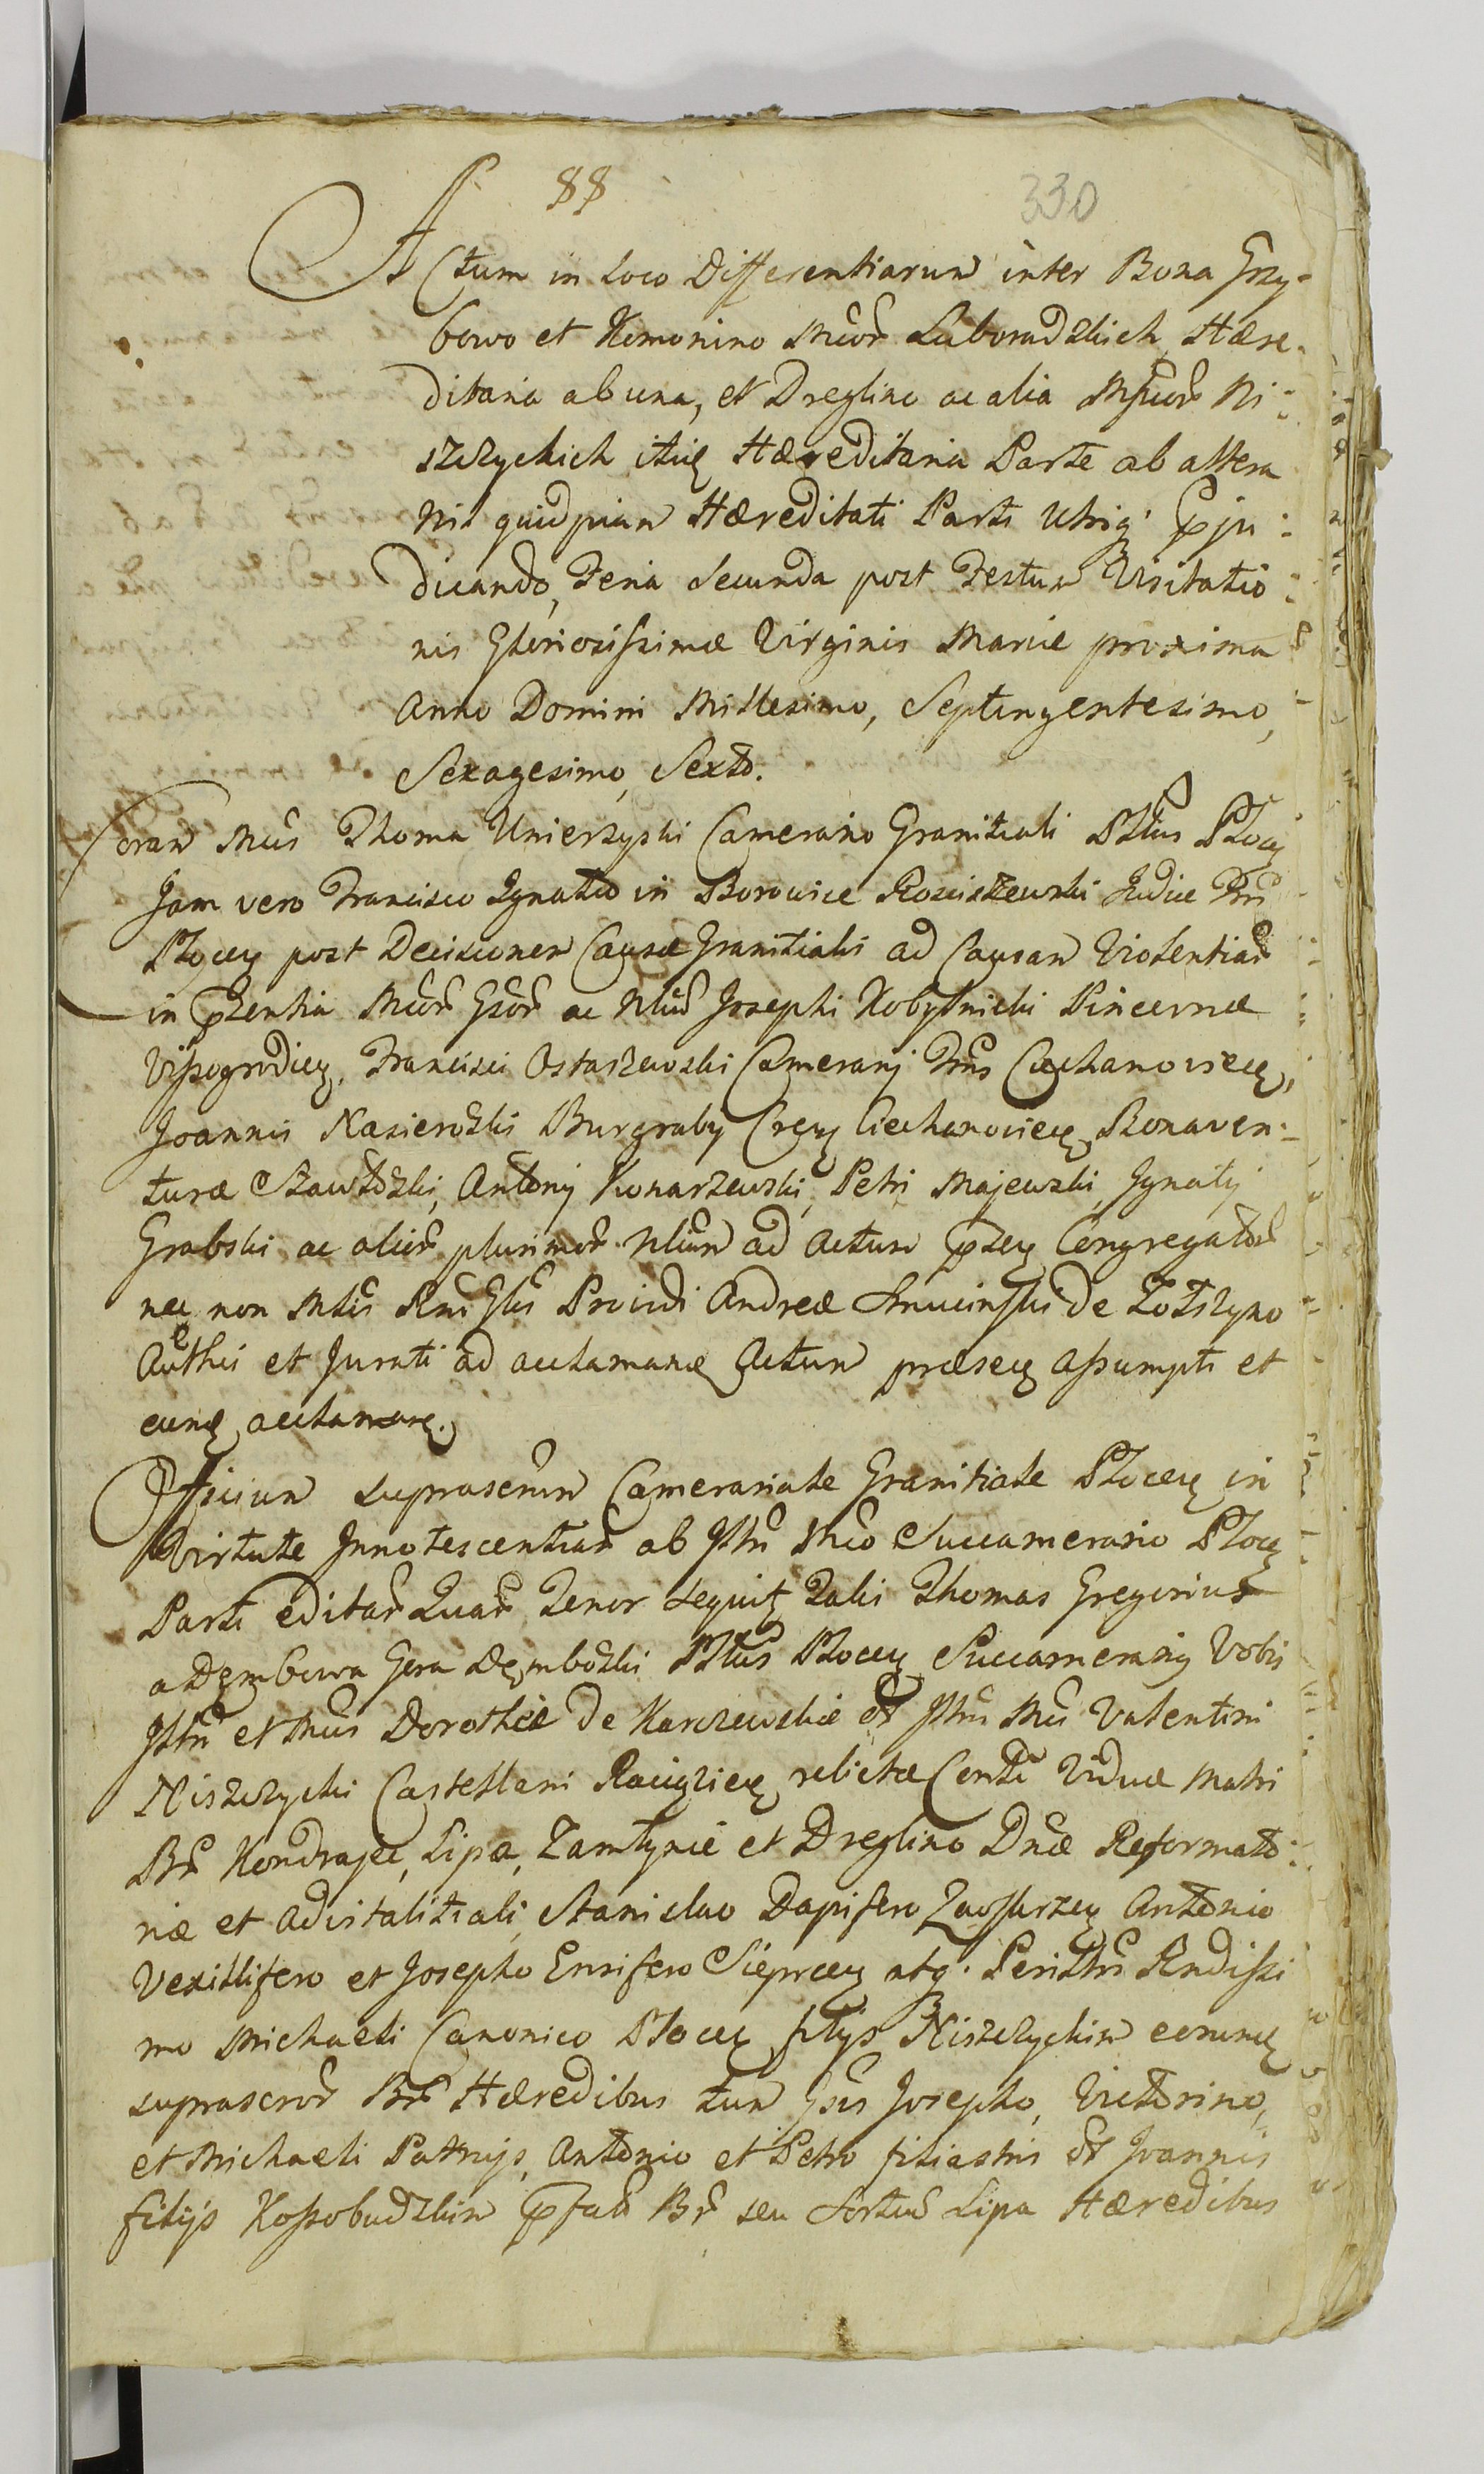 88
330
Actum in Loco Differentiarum inter Bona Grzy-
bowo et Komonino Mcor Luboradzkich Hære-
ditaria ab una, et Dreglino ac alia Mgcor Ni-
szczyckich itiq Hæreditaria Parte ab altera
Nil quidpiam Hæreditati Parti Utriq præju-
dicando, Feria Secunda post Festum Visitatio-
nis Gloriosissimæ Virginis Mariæ proxima
Anno Domini Millesimo, Septingentesimo,
Sexagesimo, Sexto.
Coram Mcis Thoma Unierzyski Camerario Granitiali Pltus Płocy
Jam vero Francisco Ignatio in Borowice Rosciszewski Judice Tri
Płocen post Decisionem Causæ Granitialis ad Causam Violentiar
in præsentia Mcor Gsor ac Nliu Josephi Kobylnicki Pincernæ
Vissogrodien, Francisci Ostaszewski Camerarij Tris Ciechanovien,
Joannis Kasierozki Burgraby Cren Ciechanovien Bonaven-
turæ Szawłozki, Antonij Konarzewski, Petri Majewski, Ignatij
Grabski ac alior plurimor Nlium ad Actum præsen Congregator
nec non Mtis Rni Glis Providi Andreæ de
Authci et Jurati ad acclamane Actum præsen assumpti et
eune acclamare.
Officium suprascrum Camerariale Granitiale Płocen in
Virtute Innotescentiar ab Illri Mco Succamerario Płocen
Parti editar Quar Tenor sequit Talis Thomas Gregorius
a Dembowa Gora Dembozki Pltus Płocen Succamerarij Vobis
Illri et Mcis Dorotheæ de Karczewskie olt Illris Mci Valentini
Niszczycki Castellani Raciązien relictæ Conti Viduæ Matri
Br Kondrajec, Lipa, Zamłynie et Dreglino Dnæ Reformato-
riæ et Advitalitiali, Stanislao Dapifero Zawskrzen Antonio
Vexillifero et Josepho Ensifero Sieprcen atq Perillris Rndissi
mo Michaeli Canonico Płocen filijs Niszczyckim eorune
suprascror Br Hæredibus tum Gsis Josepho, Victorino,
et Michaeli Patruis, Antonio et Petro filiastris olt Joannis
filijs Kossobudzkim præfatr Br seu Sortiu Lipa Hæredibus